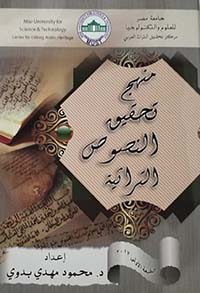 جامعة مصر
للعلوم والتكنولوجيا
مركز تحقيق التراث العربي
Misr University for
Science & Technology
Center for Editing Arabic Heritage
منهج
تحقيق
النصوص
التراثية
إعداد
د. محمود مهدي بدوي